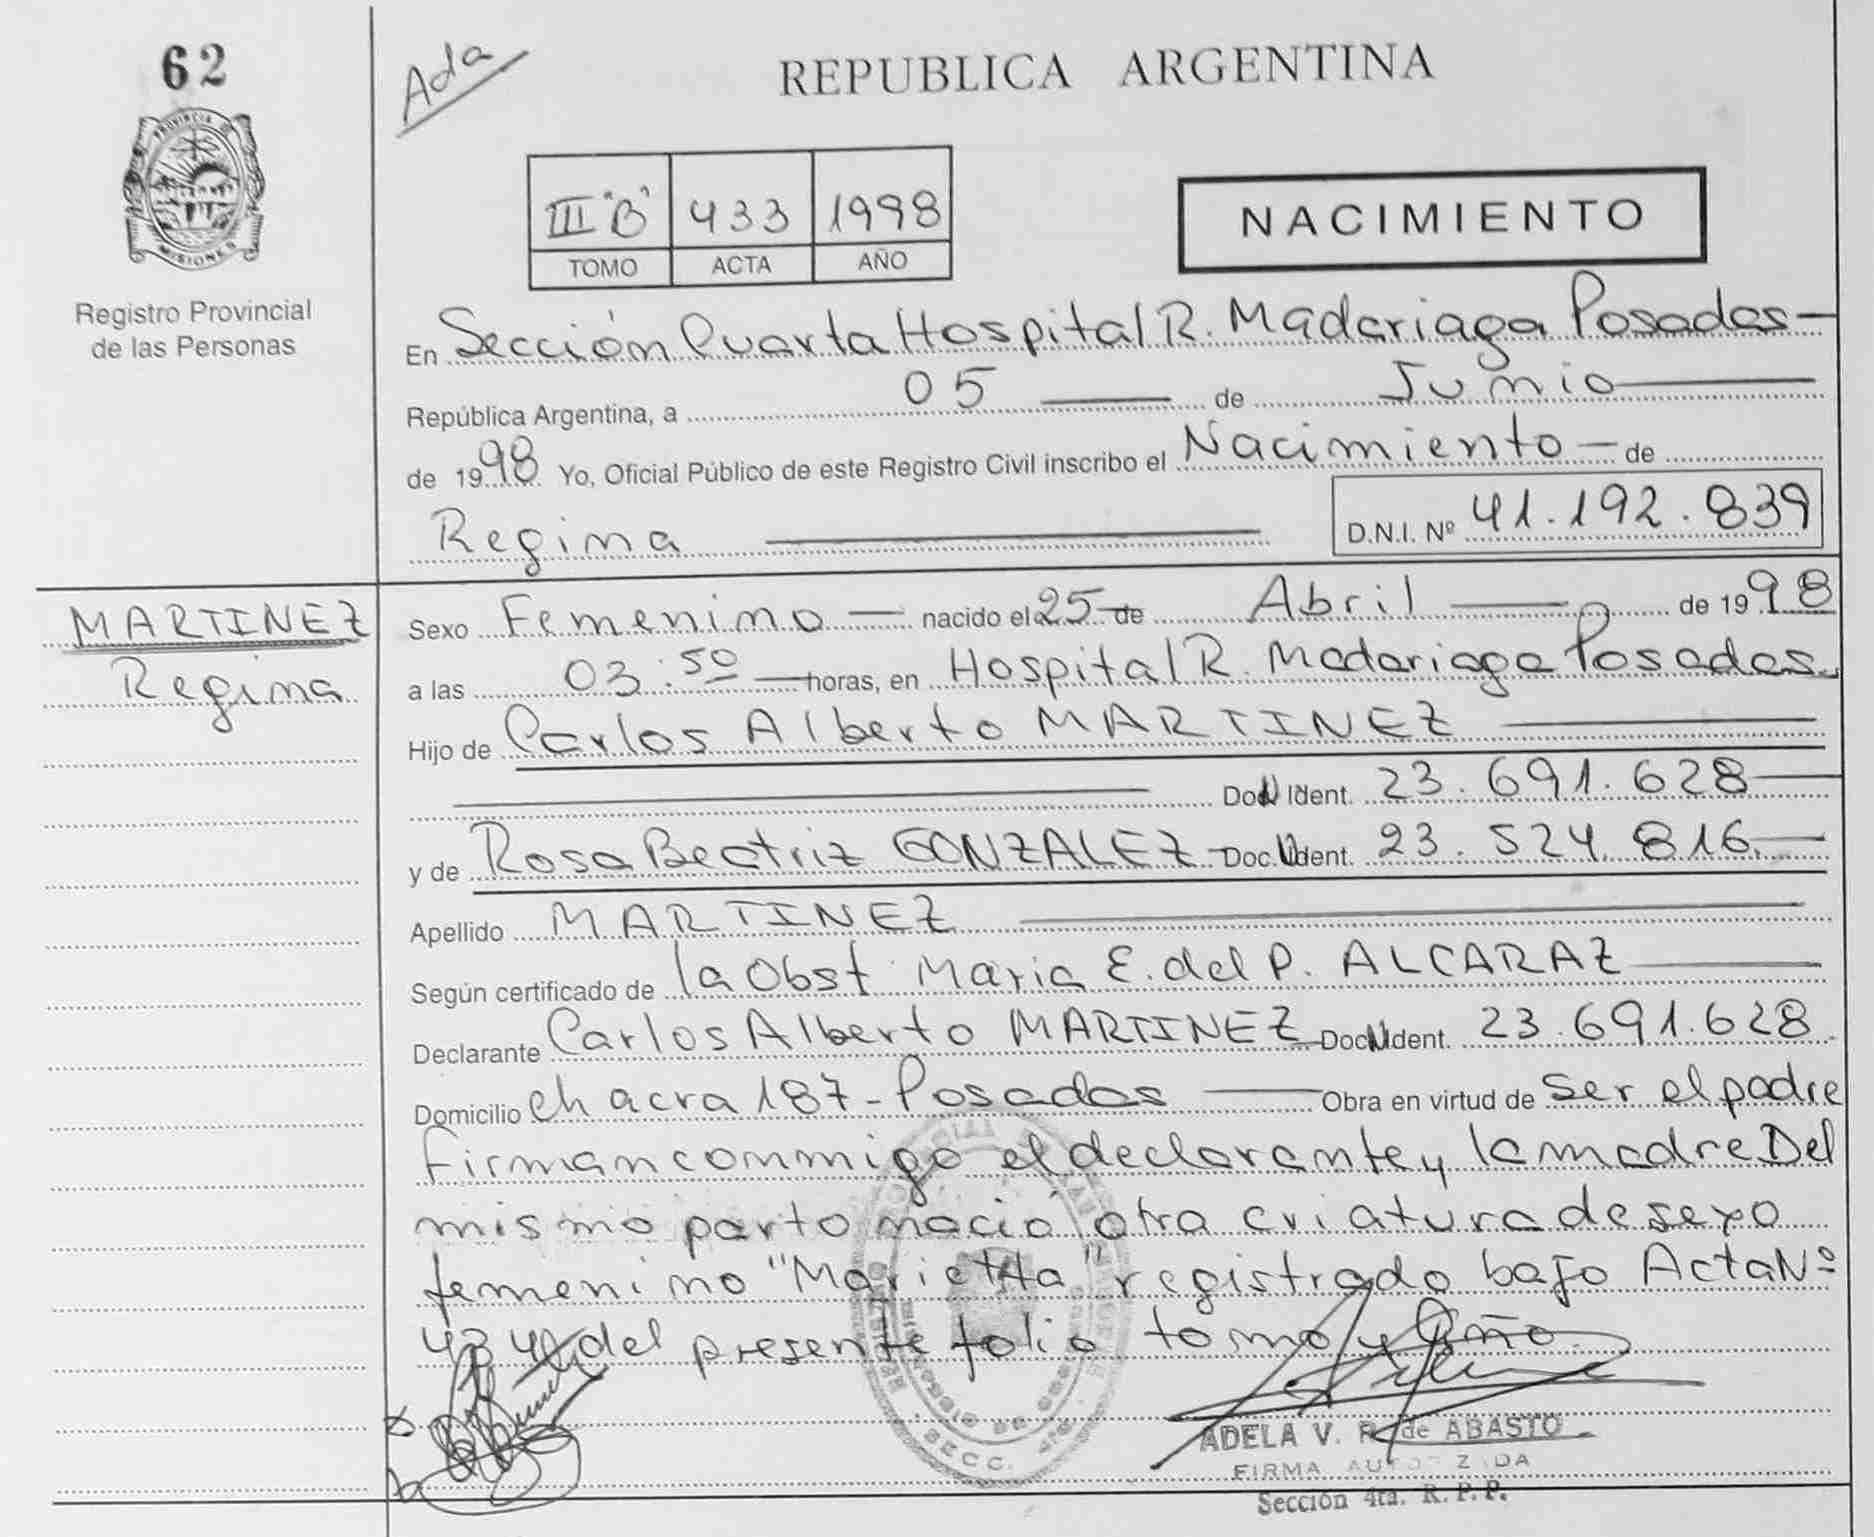 62
Ada
REPUBLICA ARGENTINA
PROVINCIA DE
MISIONES
III "B" 433 1998
TOMO ACTA AÑO
NACIMIENTO
Registro Provincial
de las Personas
En Sección Cuarta Hospital R. Madariaga Posadas
República Argentina, a 05 de Junio
de 1998 Yo, Oficial Público de este Registro Civil inscribo el Nacimiento de
Regina D.N.I. Nº 41.192.839
MARTINEZ
Regina
Sexo Femenino nacido el 25 de Abril de 1998
a las 03:50 horas, en Hospital R. Madariaga Posadas.
Hijo de Carlos Alberto MARTINEZ
Ident. 23.691.628
y de Rosa Beatriz GONZALEZ Doc. Ident. 23.524.816.
Apellido MARTINEZ
Según certificado de la Obst Maria E. del P. ALCARAZ
Declarante Carlos Alberto MARTINEZ Doc. Ident. 23.691.628
Domicilio Chacra 187 - Posadas Obra en virtud de ser el padre
firman conmigo el declarante y la madre Del
mismo parto nació otra criatura de sexo
femenino "Marietta" registrado bajo Acta Nº
434 del presente folio tomo y año.
ADELA V. R. de ABASTO
FIRMA AUTORIZADA
Sección 4ta. R. P. P.